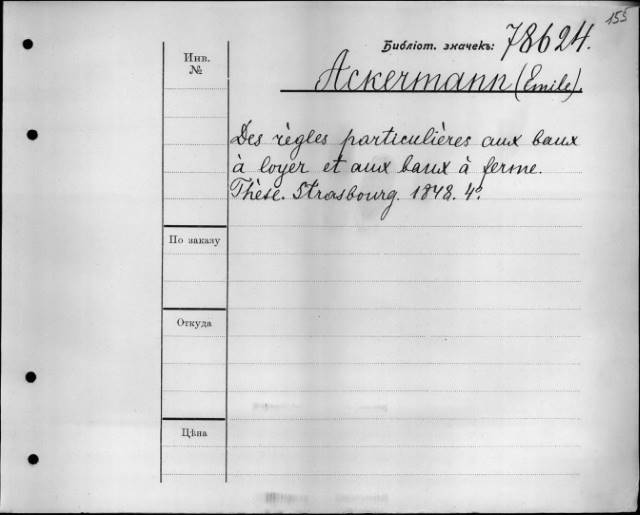 155
Библіот. значекъ: 78624.
Инв. №
Ackermann (Emile).
Des règles particulières aux baux
à loyer et aux baux à ferme.
Thèse. Strasbourg. 1848. 4º.
По заказу
Откуда
Цѣна